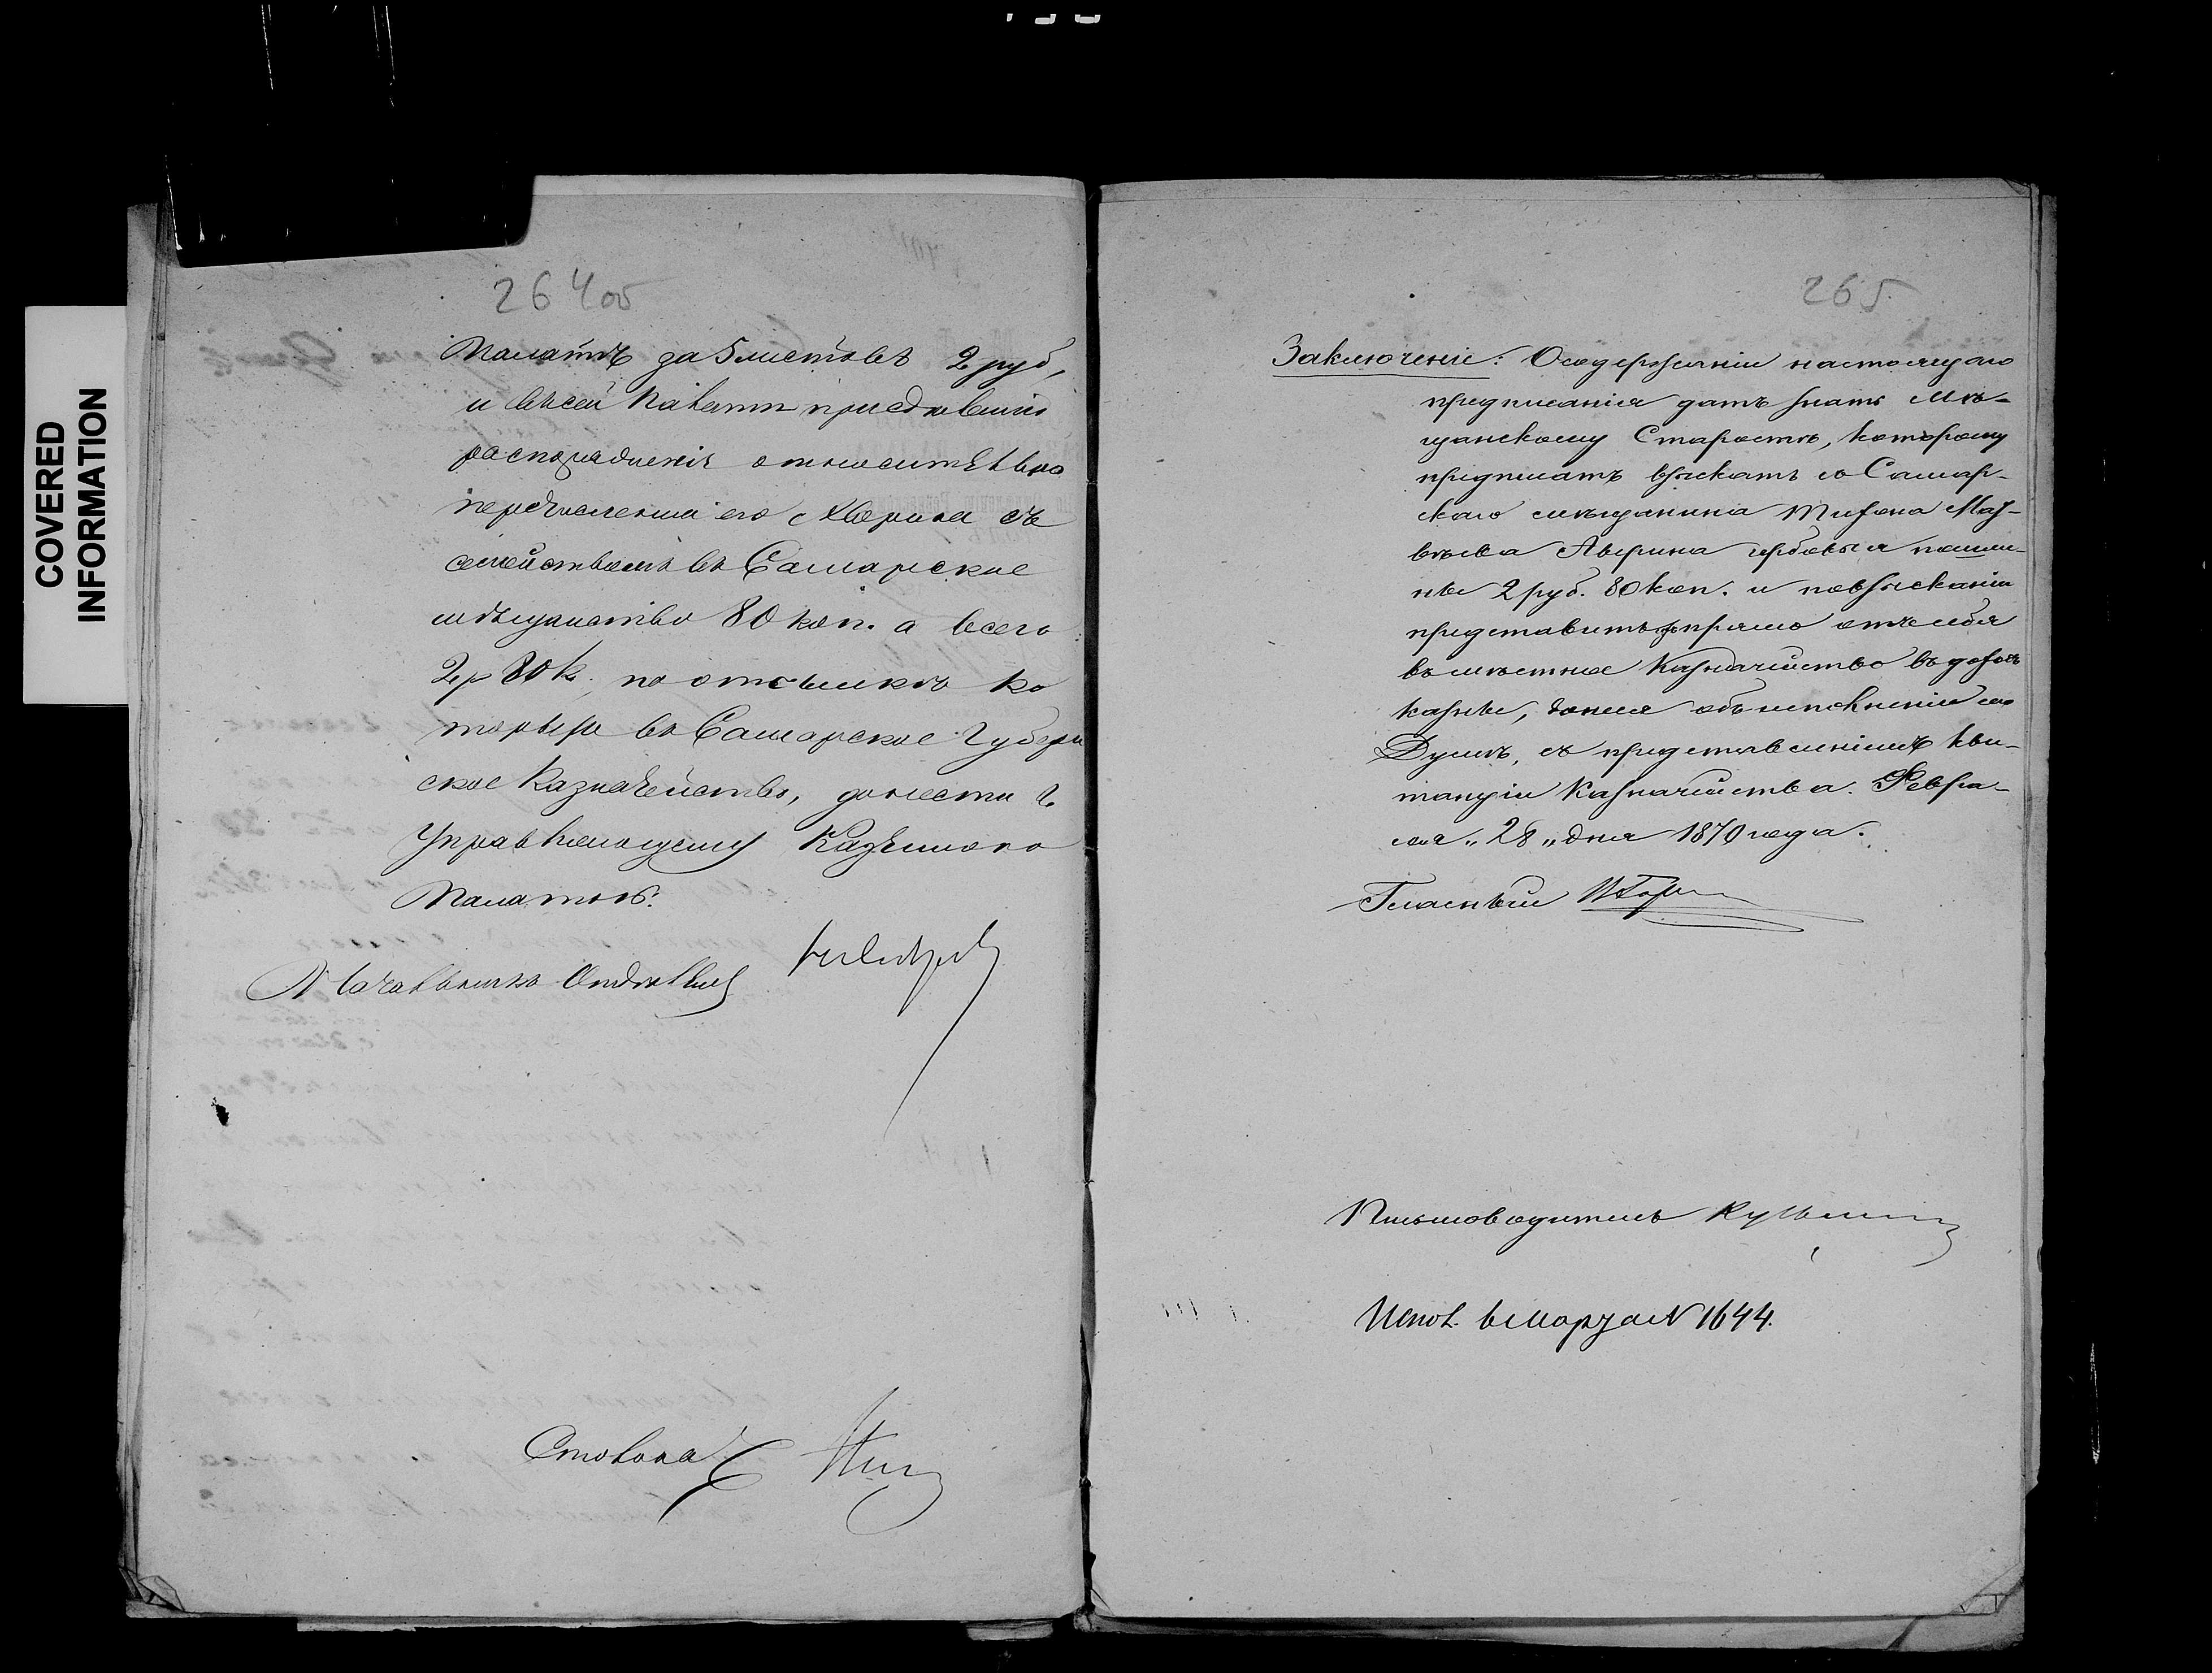 COVERED
INFORMATION
264об
Палатѣ за 5 листовъ 2 руб,
и въ сей Палатѣ при сдѣланіи
распоряженія относительно
перечисленія его Аверина съ
семействомъ въ Самарское
мѣщанство 80 коп. а всего
2 р 80 к. по отсылкѣ ко
торыхъ въ Самарское Губерн
ское Казначейство, донести Г.
Управляющему Казенною
Палатою.
Начальникъ Отдѣленія
Столонач
265
Заключеніе: О содержаніи настоящаго
предписанія дать знать Мѣ-
щанскому Старостѣ, которому
предписать взыскать съ Самар-
скаго мѣщанина Тихона Мат-
вѣева Аверина гербовыя пошли-
ны 2 руб. 80 коп. и по взысканіи
представить прямо отъ себя
въ мѣстное Казначейство въ доходъ
казны, донеся объ исполненіи сего
Думѣ, съ представленіемъ кви-
танціи Казначейства. Февра-
ля „28„ дня 1870 года.
Гласный
Письмоводитель
Испол. 6 Марта N 1644.